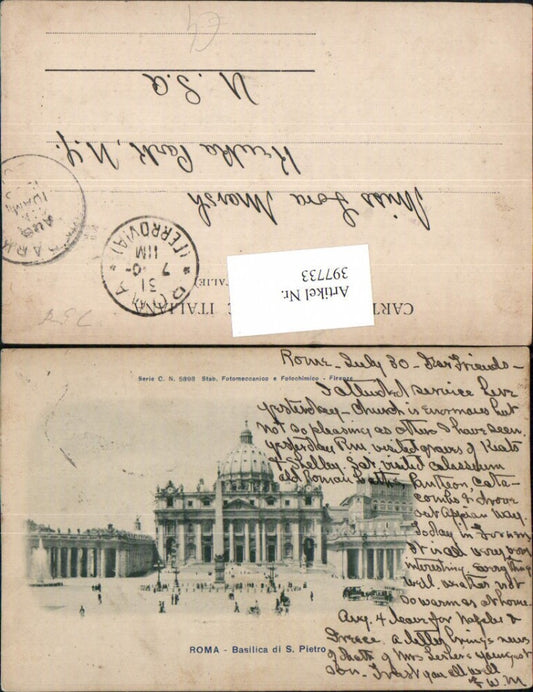 U.S.A
Keuka Park, N.Y.
Miss Lora Marsh
AUG
10AM
ARK
ROMA
(FERROVIA)
31
7-0-
11M
Artikel Nr.
397733
CART
ITALIANA
ITALIE)
Rome - July 30 - Dear Friends -
Serie C. N. 5898 Stab. Fotomeccanico e Fotochimico - Firenze
I attended service here
yesterday - Church is enormous but
not so pleasing as others I have seen.
yesterday P.m. visited graves of Keats
& Shelley. Sat. visited coloseum
old Roman baths, Panteon, cata-
combs & drove
out Appian way.
Today in Forum
It is all very very
interesting. everything
well. weather not
so warm as at home.
Aug. 4 leave for Naples &
Greece. a letter brings news
of death of Mrs youngest
son. Trust you all well
E. W. M
ROMA - Basilica di S. Pietro